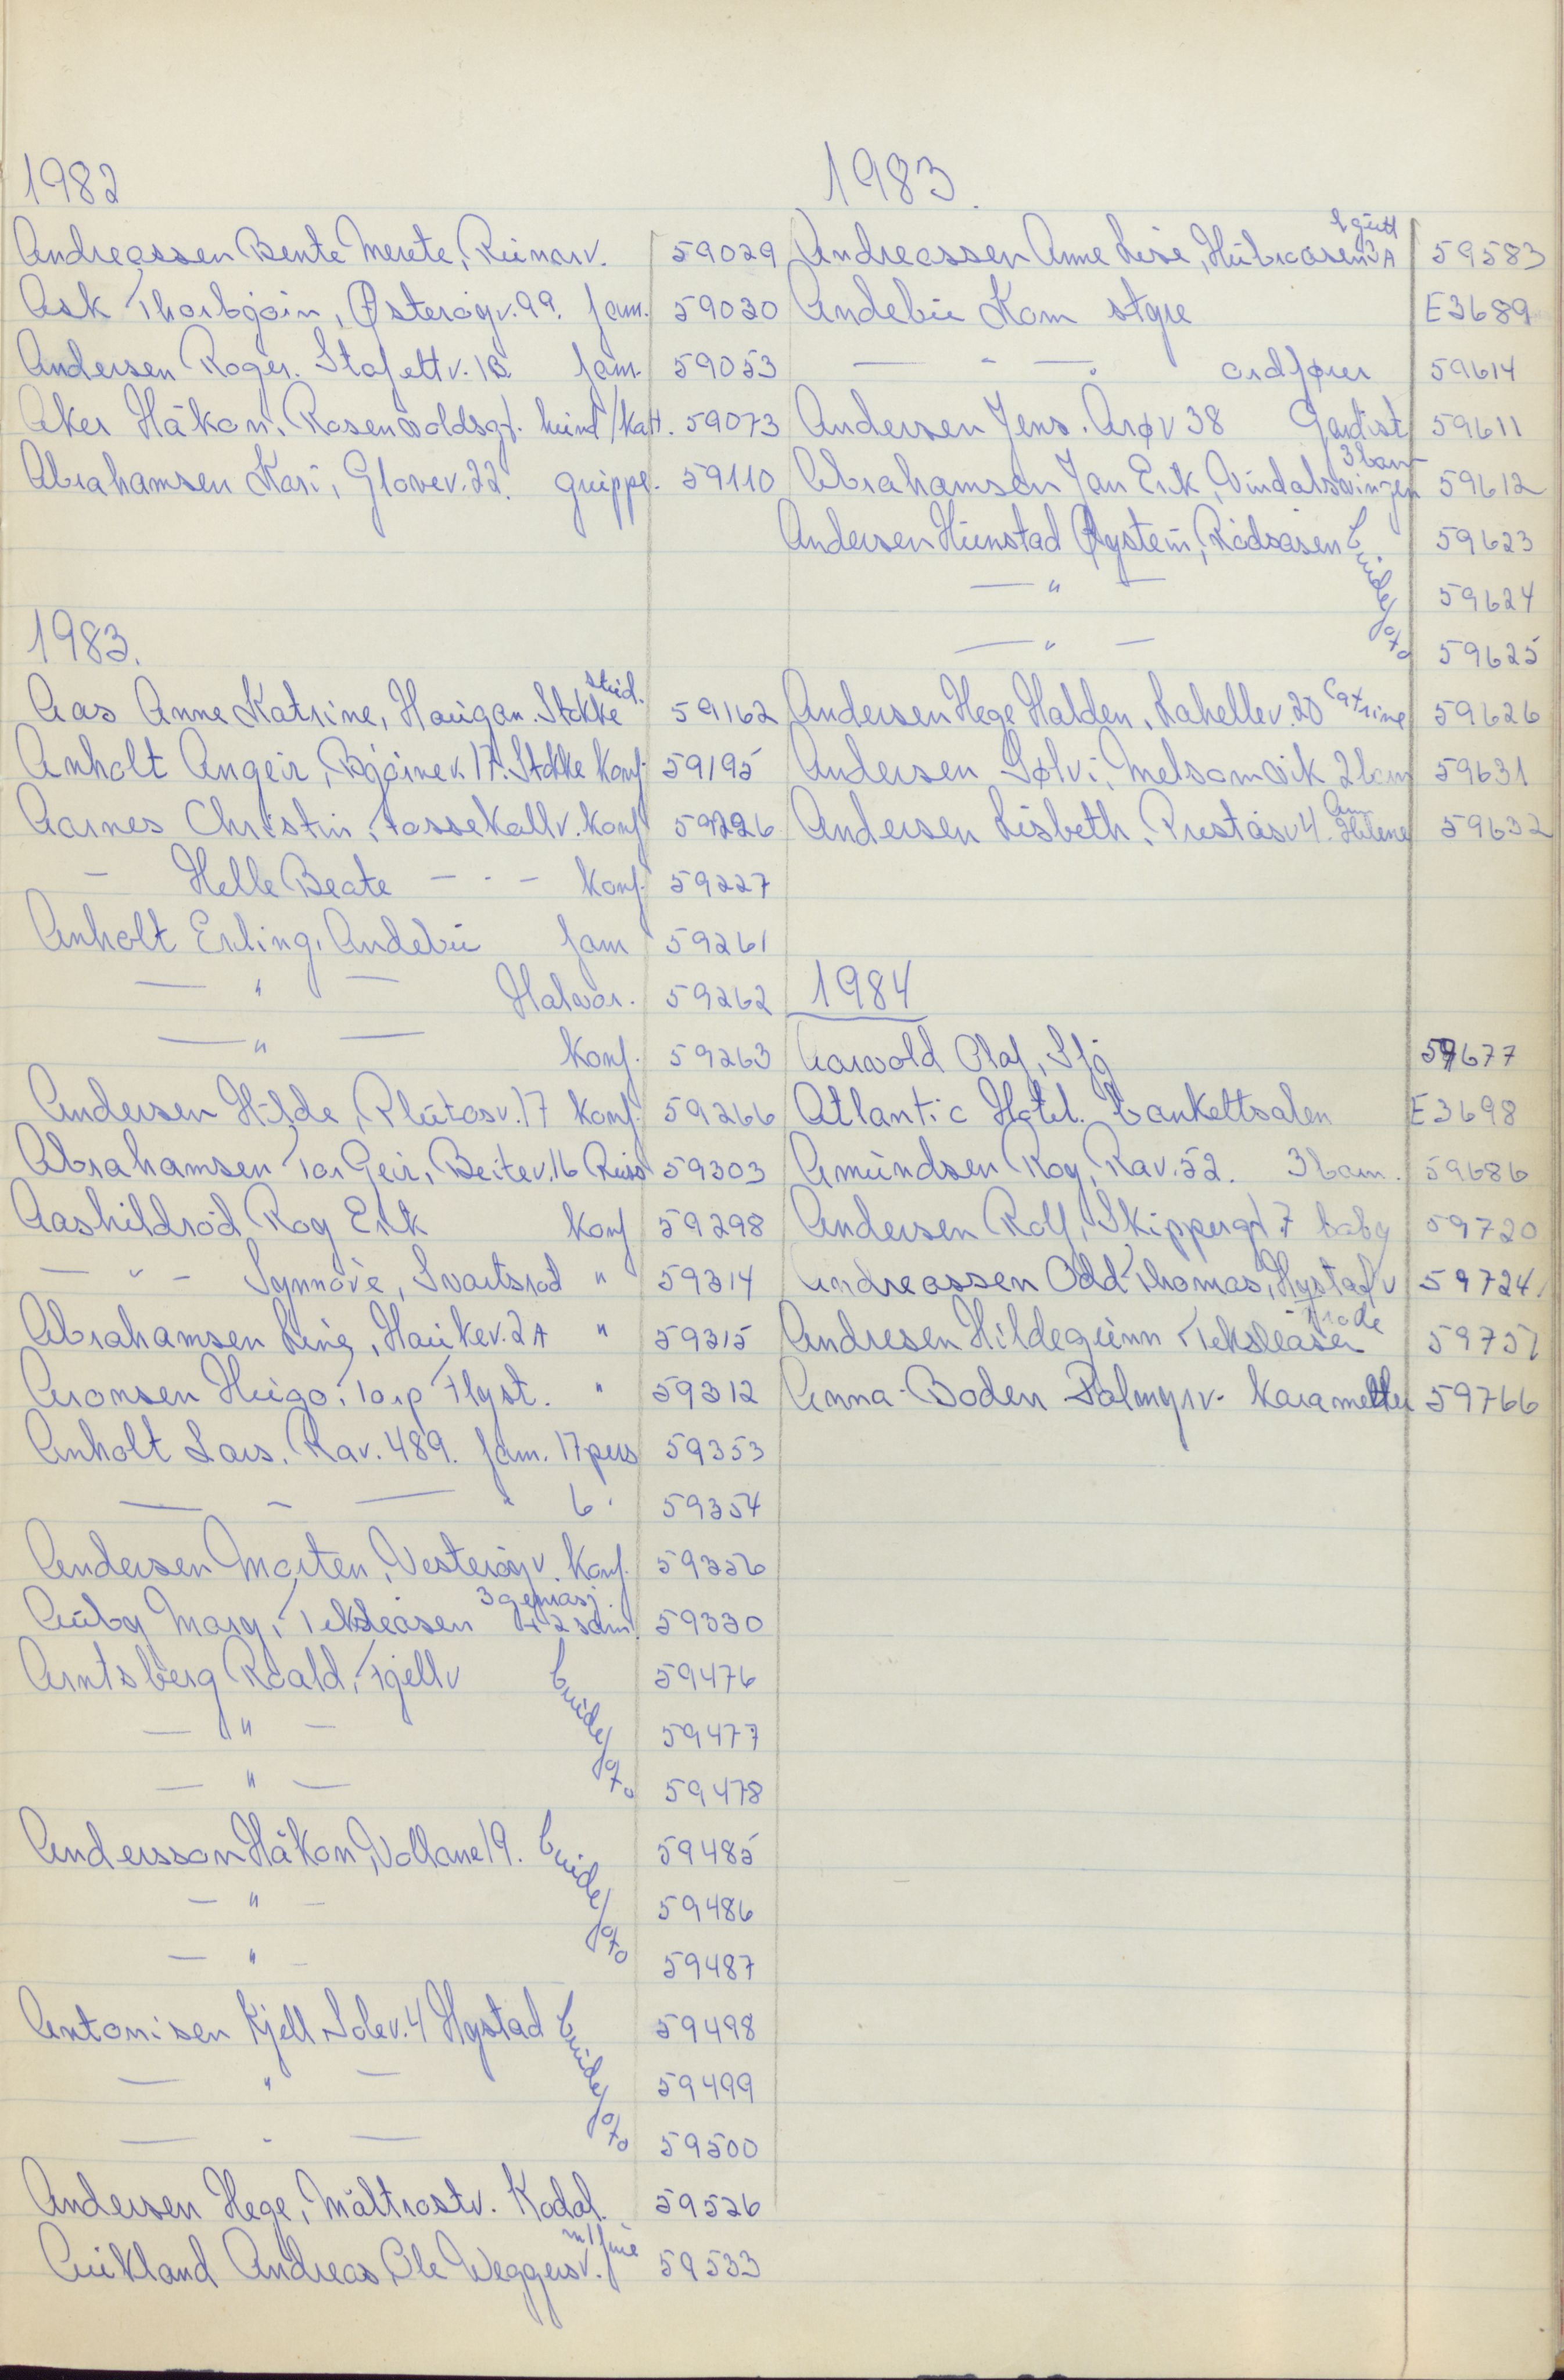 1982
Andreassen Bente Merete, Runarv. 59029
Ask Thorbjörn, Østeröyv. 99. fam. 59030
Andersen Roger. Stafettv. 1B fam. 59053
Aker Håkon. Rosenvoldsgt. hund/katt. 59073
Abrahamsen Kari, Glovev. 22. gruppe. 59110
1983.
Aas Anne Katrine, Haugan. Stokke stud. 59162
Anholt Angeir, Bjørnev. 17. Stokke konf. 59195
Aarnes Christin, Fossekallv. konf 59226
— Helle Beate - " - konf. 59227
Anholt Erling. Andebu fam 59261
— " — Halvor. 59262
— " — konf. 59263
Andersen Hilde, Plutosv. 17 konf. 59266
Abrahamsen Tor Geir, Beitev. 16 Russ 59303
Aashildröd Roy Erik konf 59298
— " - Synnöve, Svartsrod " 59314
Abrahamsen Line, Haukev. 2A " 59315
Aronsen Hugo. Torp Flyst. " 59312
Anholt Lars. Rav. 489. fam. 17 pers 59353
— " — " 6 " 59354
Andersen Morten, Vesteröyv. konf. 59356
Auby Mary, Teksleåsen 3 generasj. + 2 sam. 59330
Arntsberg Roald, Fjellv brudefoto 59476
— " — 59477
— " — 59478
Andersson Håkon, Vollane 19. brudefoto 59485
— " — 59486
— " — 59487
Antonisen Kjell Solev. 4 Hystad brudefoto 59498
— " — 59499
— " — 59500
Andersen Hege, Måltrostv. Kodal. 59526
Aukland Andreas, Ole Weggersv. m/frue 59533
1983.
Andreassen Anne Lise, Hubroåsen 3A 1 gutt 59583
Andebu Kom styre E3689
— " — . ordfører 59614
Andersen Jens. Arøv 38 Gardist 59611
Abrahamsen Jan Erik, Vindalsvingen 3 barn 59612
Andersen Hunstad Øystein, Rödsåsen brudefoto 59623
— " — 59624
— " — 59625
Andersen Hege Halden, Lahellev. 20 Catrine 59626
Andersen Sølvi, Melsomvik 2 barn 59631
Andersen Lisbeth, Preståsv 4. Helene 59632
1984
Aarvold Olaf, Sfj 59677
Atlantic Hotel. Bankettsalen E3698
Amundsen Roy, Rav. 52. 3 barn. 59686
Andersen Rolf, Skippergt. 7 baby 59720
Andreassen Odd Thomas, Hystadv 59724
Andresen Hildegunn Teksleåsen Frode 59751
Anna-Boden Palmyrv. karameller 59766